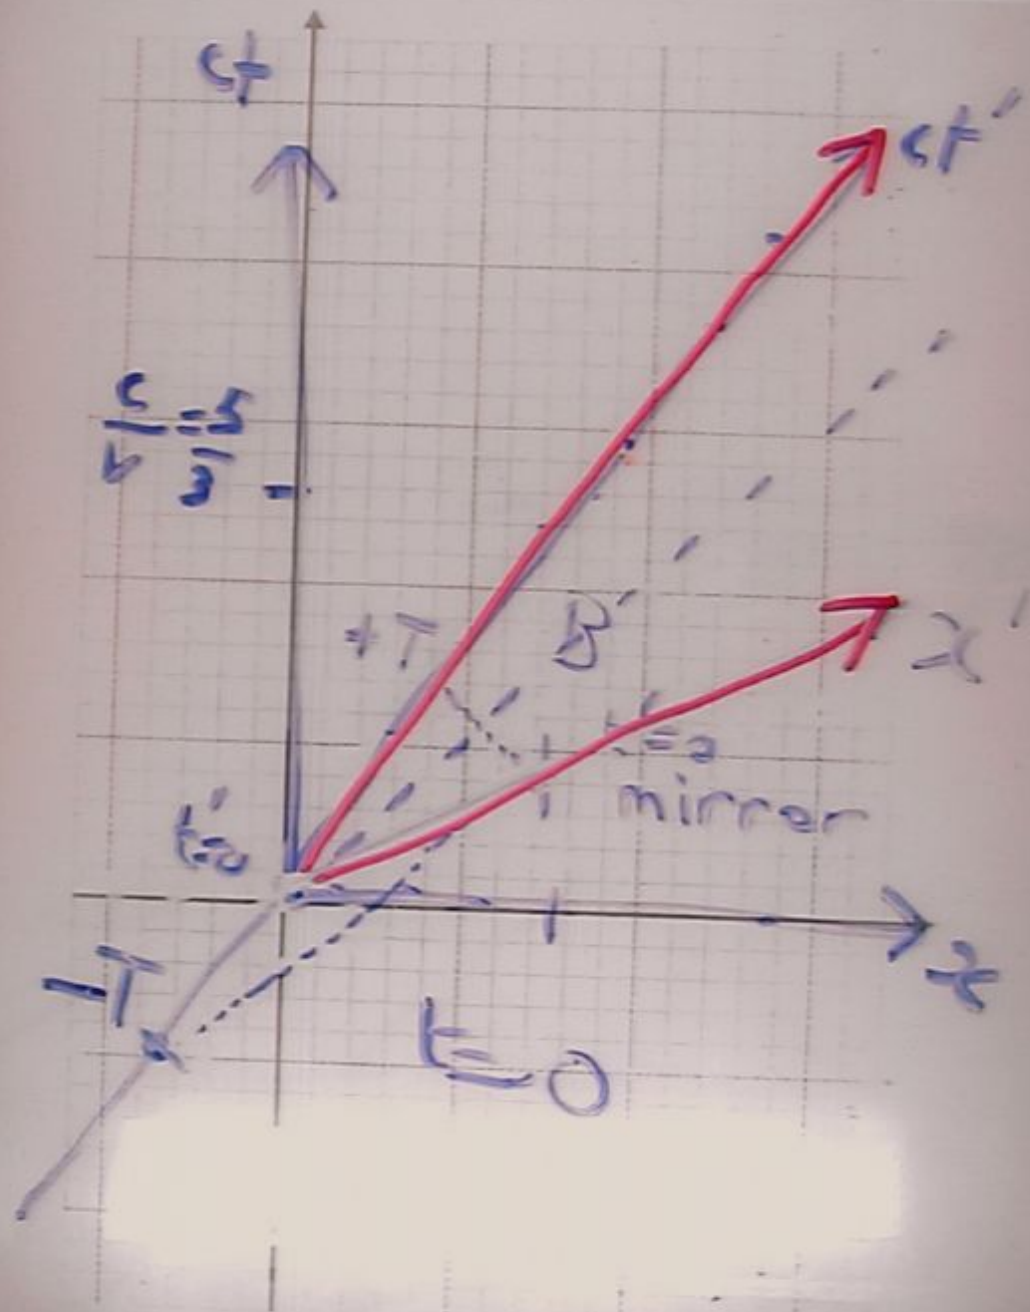 ct
ct′
c/v = 5/3
+T
B′
x′
t′=0
mirror
t′=0
x
-T
t=0